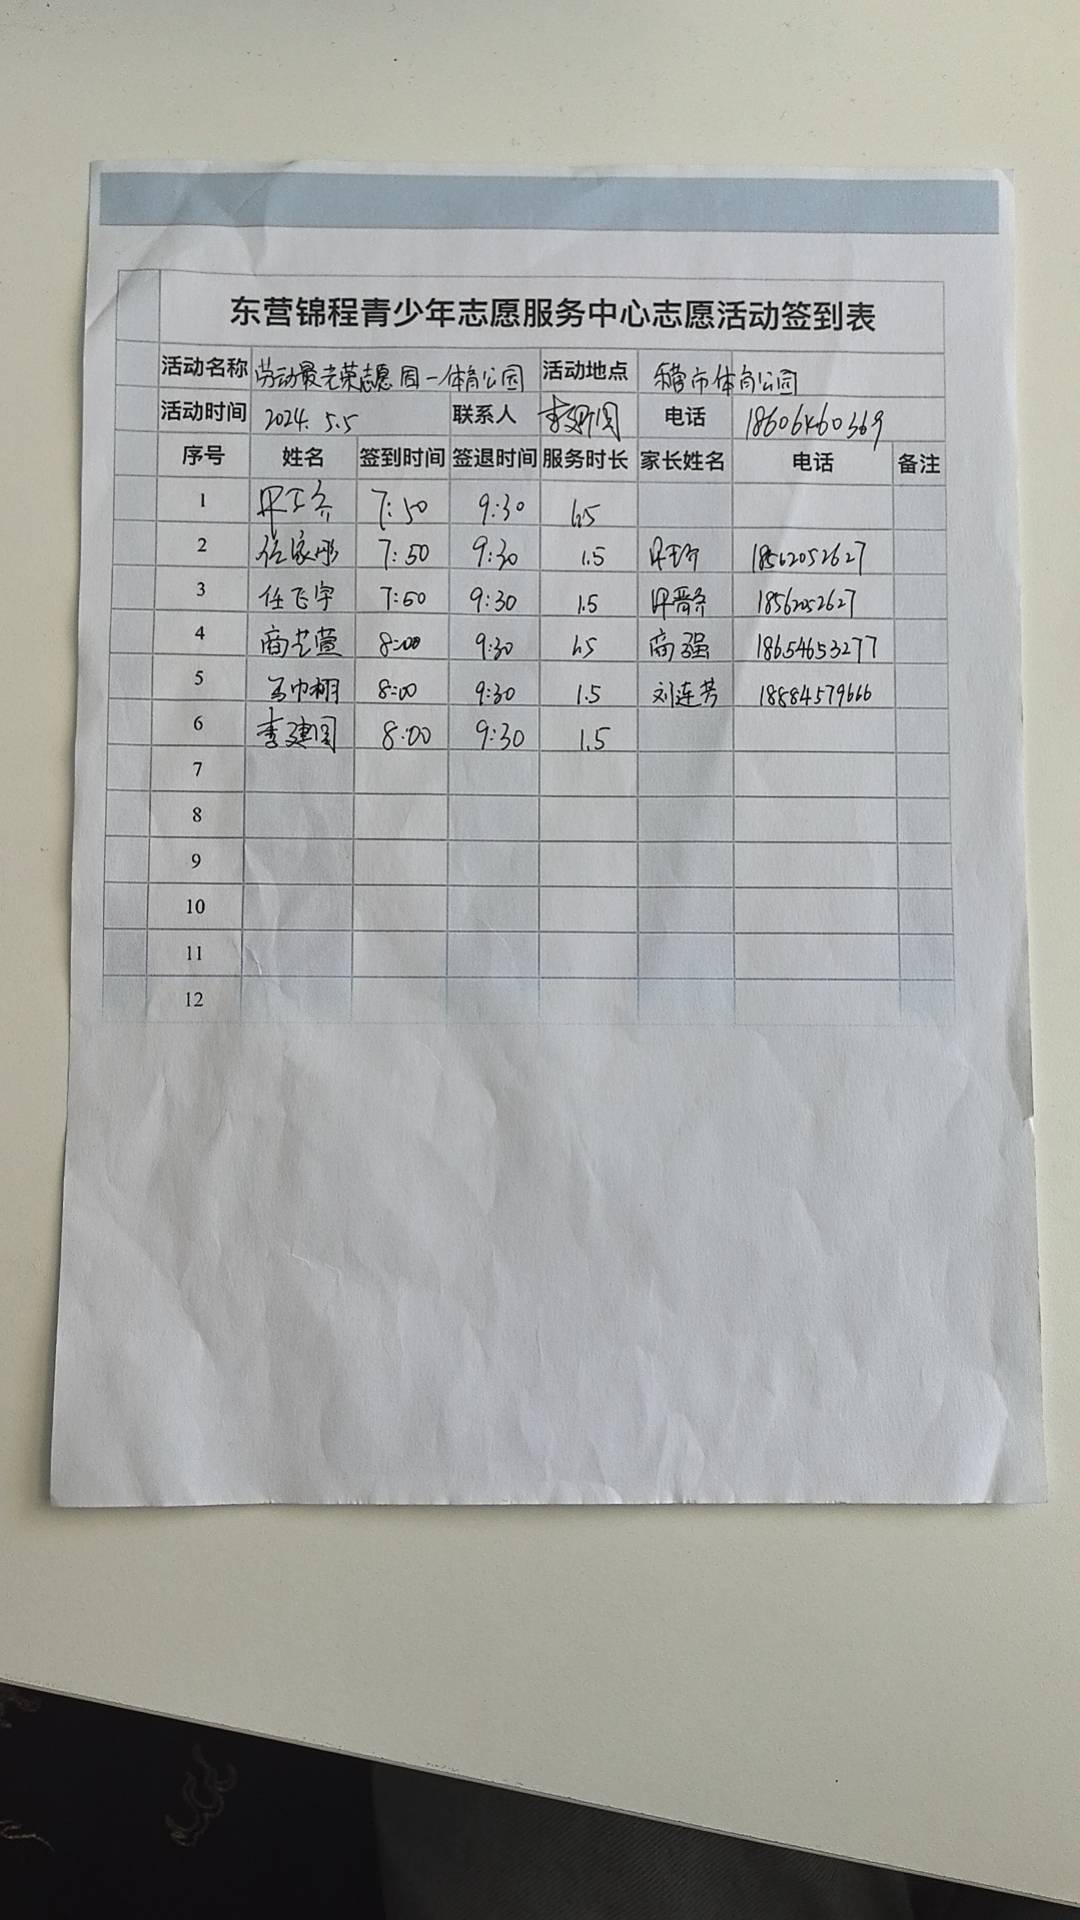 东营锦程青少年志愿服务中心志愿活动签到表
活动名称 劳动最光荣志愿 园一体育公园 活动地点 市体育公园
活动时间 2024. 5.5 联系人 李建国 电话
序号 姓名 签到时间 签退时间 服务时长 家长姓名 电话 备注
1 7:50 9:30 1.5
2 任家彤 7:50 9:30 1.5 18562052627
3 任飞宇 7:50 9:30 1.5 18562052627
4 商艺萱 8:00 9:30 1.5 商强 18654653277
5 8:00 9:30 1.5 刘连芳 18884579666
6 李建国 8:00 9:30 1.5
7
8
9
10
11
12